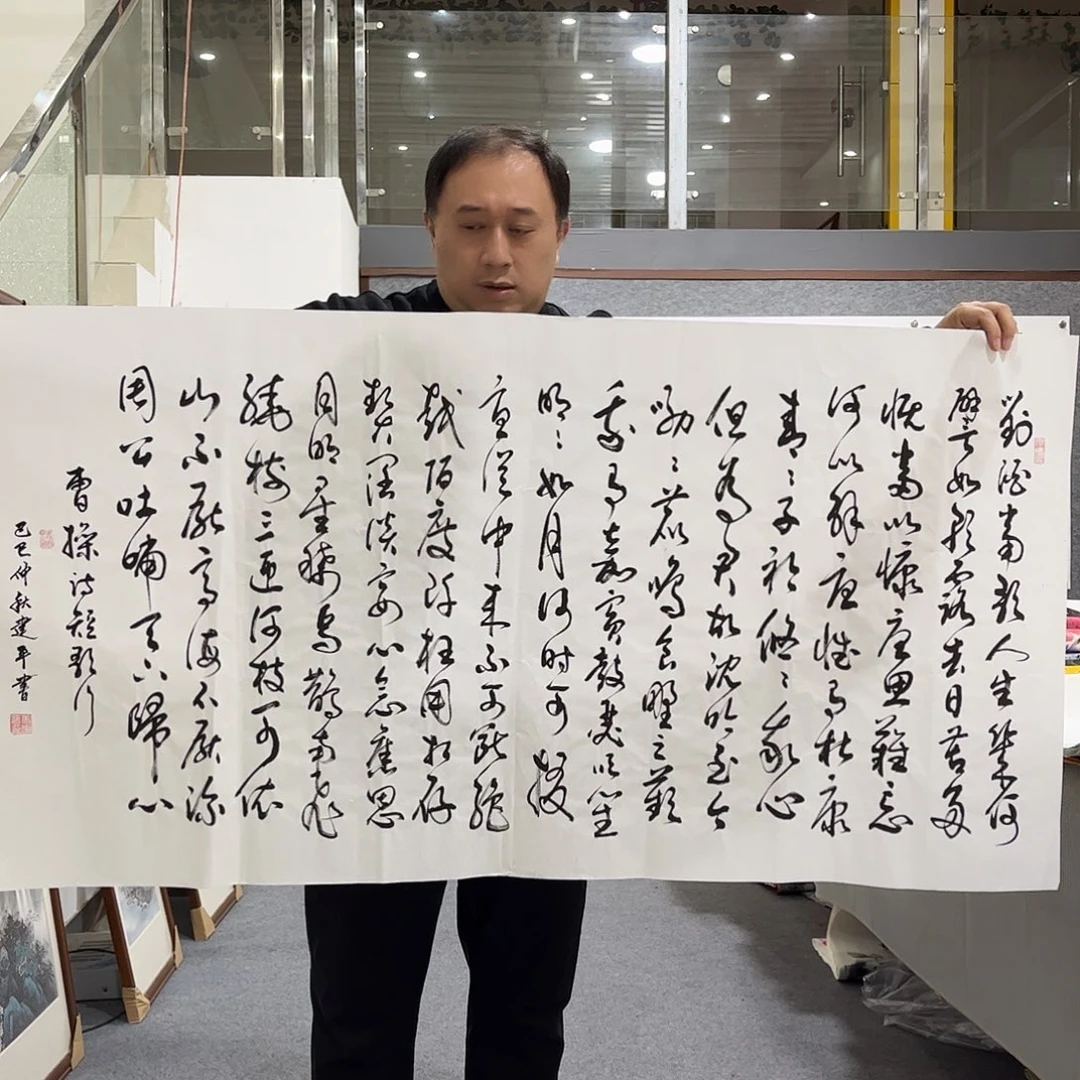 對酒當歌人生幾何
譬如朝露去日苦多
慨當以慷憂思難忘
何以解憂惟有杜康
青〻子衿悠〻我心
但為君故沈吟至今
呦〻鹿鳴食野之蘋
我有嘉賓鼓瑟吹笙
明〻如月何时可掇
憂從中来不可斷絕
越陌度阡枉用相存
契闊談宴心念舊恩
月明星稀烏鵲南飛
繞樹三匝何枝可依
山不厭高海不厭深
周公吐哺天下歸心
曹操詩短歌行
乙巳仲秋建平書